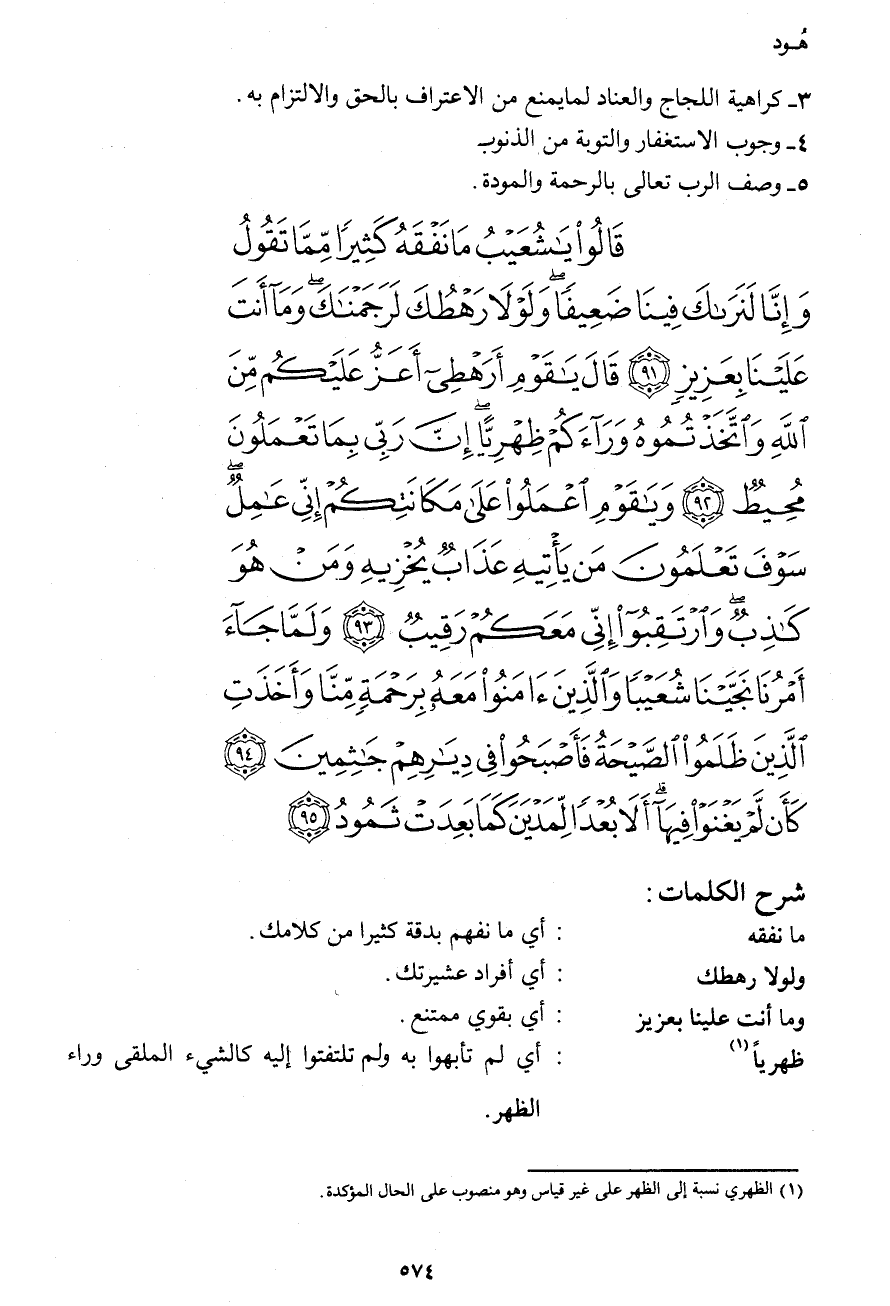 هُـود
٣ـ كراهية اللجاج والعناد لمايمنع من الاعتراف بالحق والالتزام به .
٤ـ وجوب الاستغفار والتوبة من الذنوب
٥ـ وصف الرب تعالى بالرحمة والمودة .
قَالُوا۟ يَـٰشُعَيْبُ مَا نَفْقَهُ كَثِيرًا مِّمَّا تَقُولُ
وَإِنَّا لَنَرَىٰكَ فِينَا ضَعِيفًا ۖ وَلَوْلَا رَهْطُكَ لَرَجَمْنَـٰكَ ۖ وَمَآ أَنتَ
عَلَيْنَا بِعَزِيزٍ ﴿٩١﴾ قَالَ يَـٰقَوْمِ أَرَهْطِىٓ أَعَزُّ عَلَيْكُم مِّنَ
ٱللَّهِ وَٱتَّخَذْتُمُوهُ وَرَآءَكُمْ ظِهْرِيًّا ۖ إِنَّ رَبِّى بِمَا تَعْمَلُونَ
مُحِيطٌ ﴿٩٢﴾ وَيَـٰقَوْمِ ٱعْمَلُوا۟ عَلَىٰ مَكَانَتِكُمْ إِنِّى عَـٰمِلٌ ۖ
سَوْفَ تَعْلَمُونَ مَن يَأْتِيهِ عَذَابٌ يُخْزِيهِ وَمَنْ هُوَ
كَـٰذِبٌ ۖ وَٱرْتَقِبُوٓا۟ إِنِّى مَعَكُمْ رَقِيبٌ ﴿٩٣﴾ وَلَمَّا جَآءَ
أَمْرُنَا نَجَّيْنَا شُعَيْبًا وَٱلَّذِينَ ءَامَنُوا۟ مَعَهُۥ بِرَحْمَةٍ مِّنَّا وَأَخَذَتِ
ٱلَّذِينَ ظَلَمُوا۟ ٱلصَّيْحَةُ فَأَصْبَحُوا۟ فِى دِيَـٰرِهِمْ جَـٰثِمِينَ ﴿٩٤﴾
كَأَن لَّمْ يَغْنَوْا۟ فِيهَآ ۗ أَلَا بُعْدًا لِّمَدْيَنَ كَمَا بَعِدَتْ ثَمُودُ ﴿٩٥﴾
شرح الكلمات :
ما نفقه : أي ما نفهم بدقة كثيرا من كلامك .
ولولا رهطك : أي أفراد عشيرتك .
وما أنت علينا بعزيز : أي بقوي ممتنع .
ظهرياً (١) : أي لم تأبهوا به ولم تلتفتوا إليه كالشيء الملقى وراء
الظهر .
(١) الظهري نسبة إلى الظهر على غير قياس وهو منصوب على الحال المؤكدة .
٥٧٤